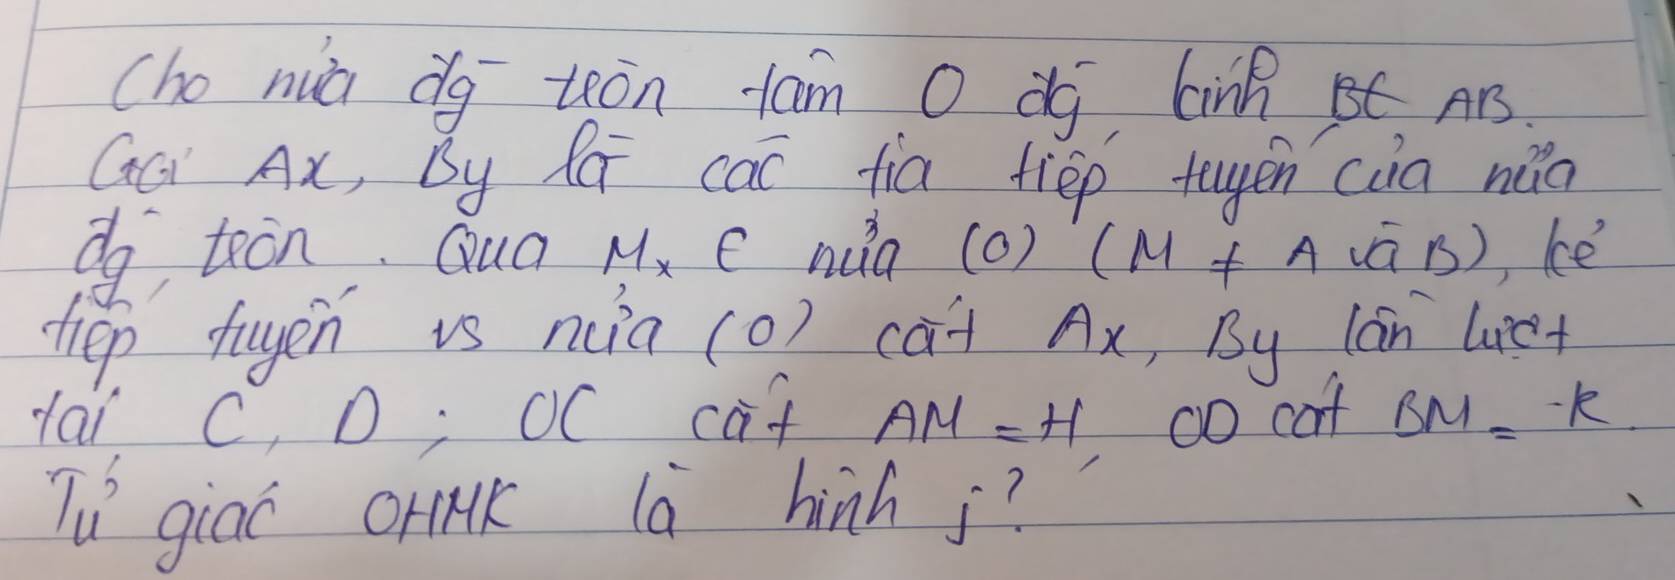 Cho nửa đg tròn tâm O đg kính AB.
Gọi Ax, By là các tia tiếp tuyến của nửa
đg tròn. Qua M ∈ nửa (O) (M ≠ A và B), kẻ
tiếp tuyến vs nửa (O) cắt Ax, By lần lượt
tại C, D; OC cắt AM = H, OD cắt BM = K.
Tứ giác OHMK là hình j?